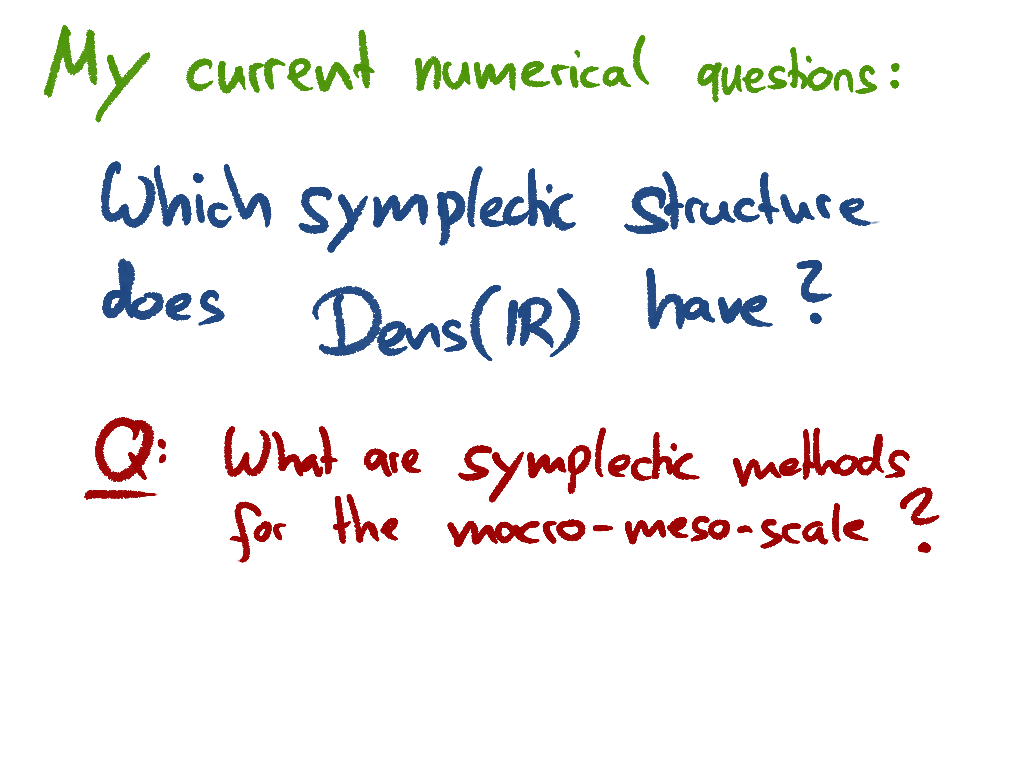 My current numerical questions:
Which symplectic structure
does Dens(ℝ) have?
Q: What are symplectic methods
for the macro-meso-scale?